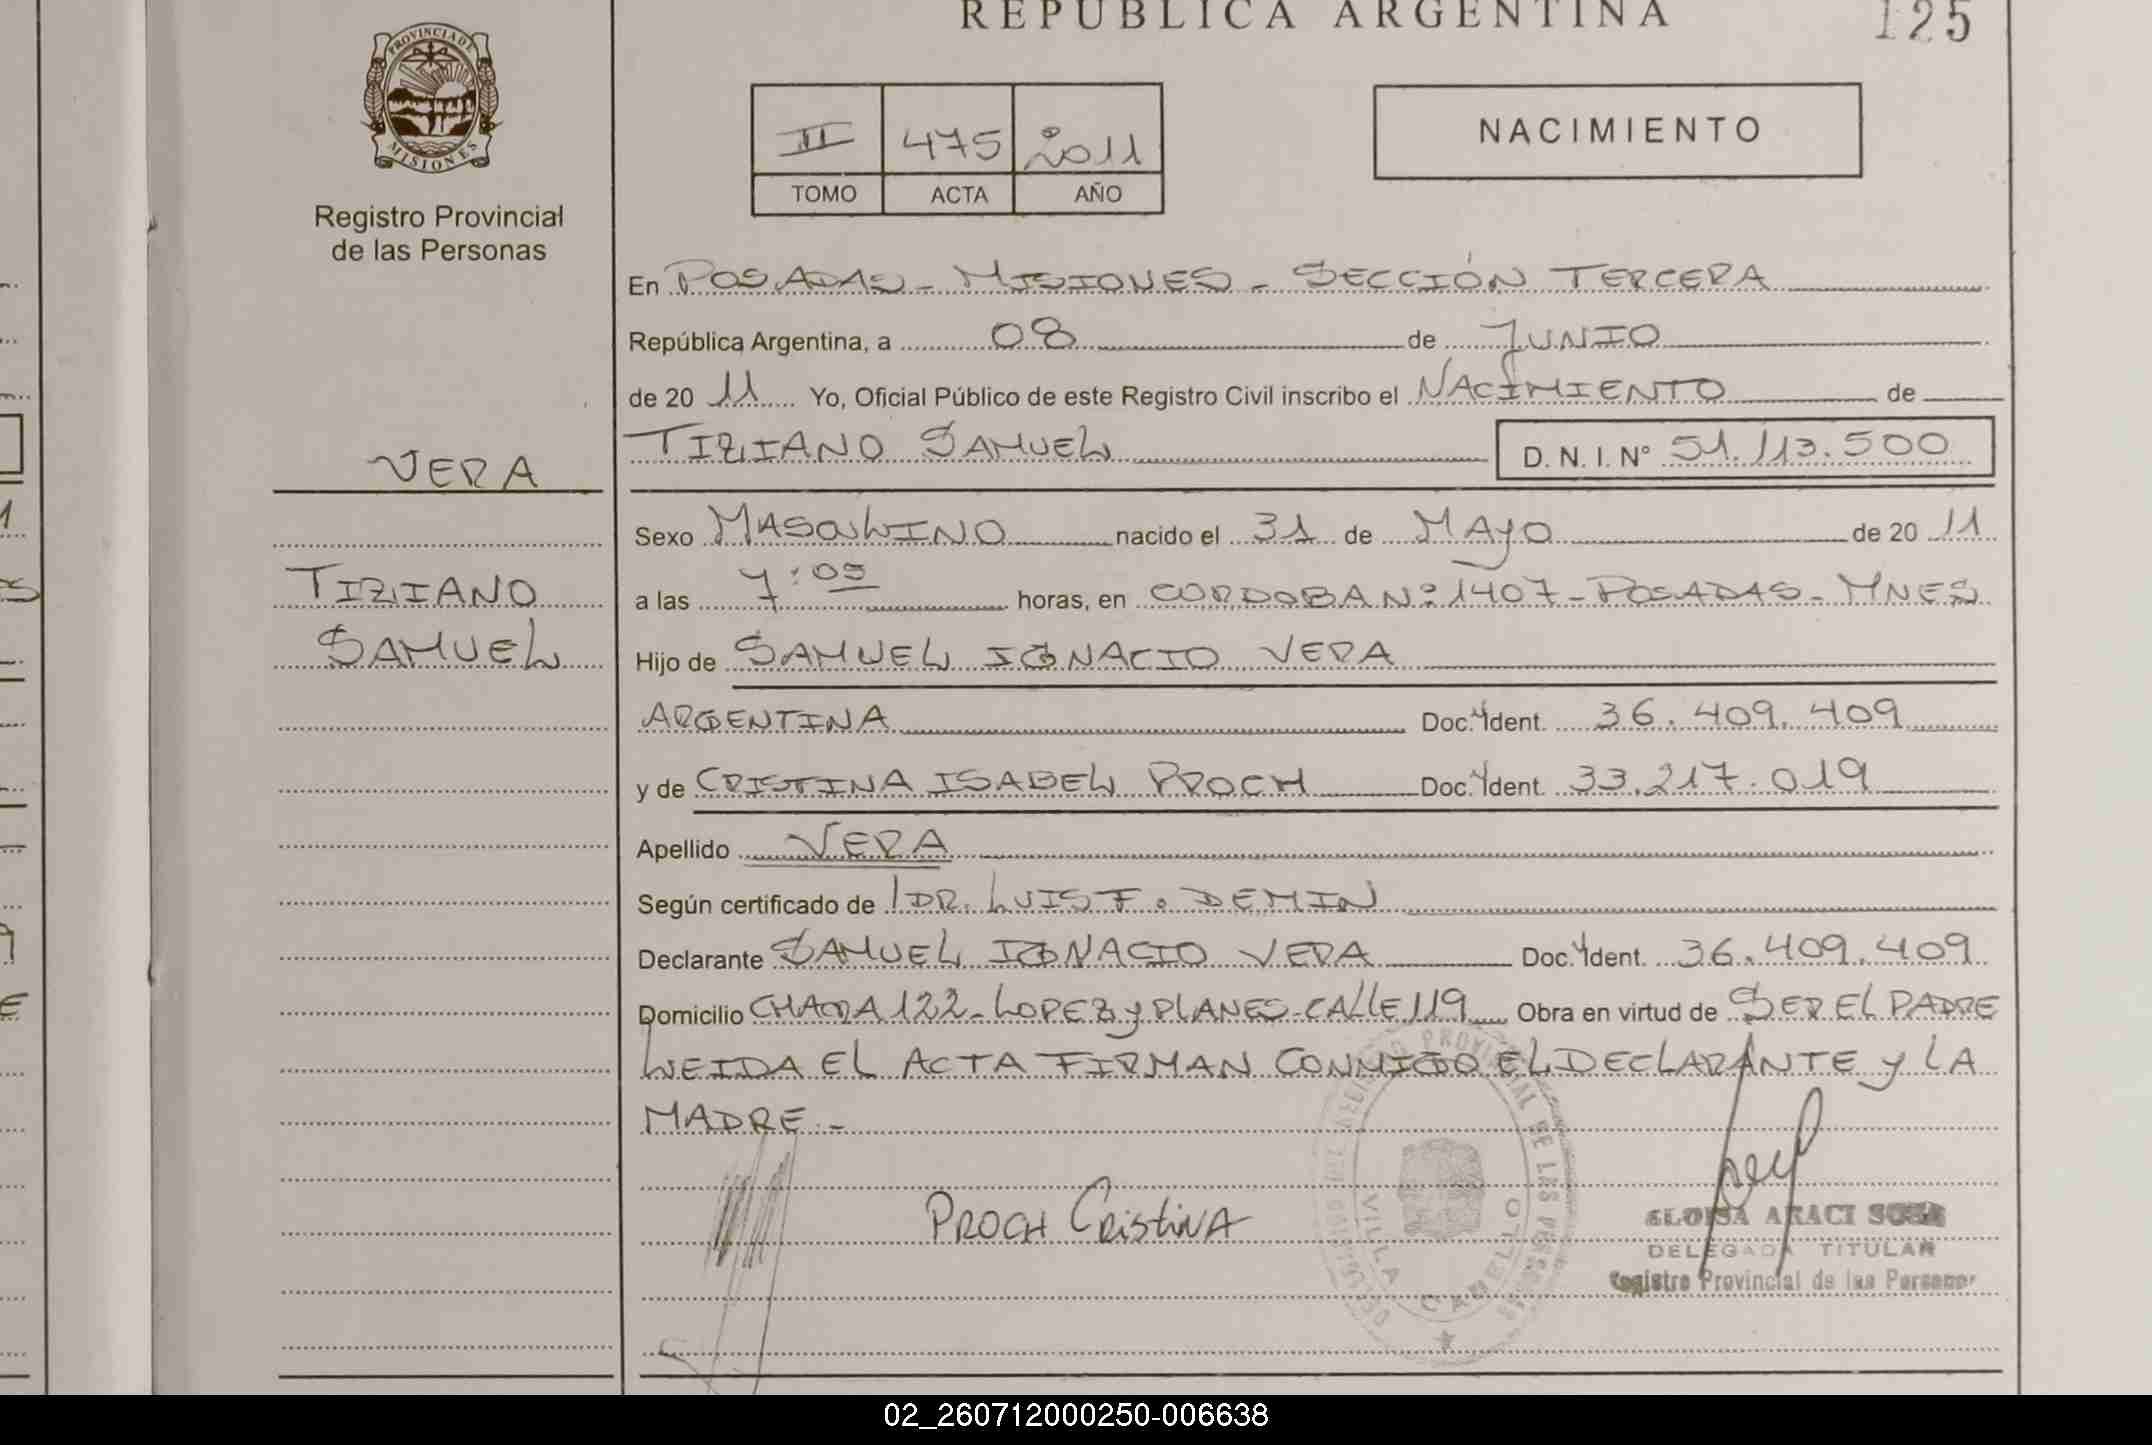 REPUBLICA ARGENTINA
125
PROVINCIA DE
MISIONES
Registro Provincial
de las Personas
II 475 2011
TOMO ACTA AÑO
NACIMIENTO
VERA
TIZIANO
SAMUEL
En POSADAS - MISIONES - SECCIÓN TERCERA
República Argentina, a 08 de JUNIO
de 20 11 Yo, Oficial Público de este Registro Civil inscribo el NACIMIENTO de
TIZIANO SAMUEL D. N. I. N° 51.113.500
Sexo MASCULINO nacido el 31 de MAYO de 20 11
a las 7:05 horas, en CORDOBA Nº 1407 - POSADAS - MNES
Hijo de SAMUEL IGNACIO VERA
ARGENTINA Doc. Ident. 36.409.409
y de CRISTINA ISABEL PROCH Doc. Ident. 33.217.019
Apellido VERA
Según certificado de DR. LUIS F. DEMIN
Declarante SAMUEL IGNACIO VERA Doc. Ident. 36.409.409
Domicilio CHACRA 122 - LOPEZ y PLANES - CALLE 119 Obra en virtud de SER EL PADRE
LEIDA EL ACTA FIRMAN CONMIGO EL DECLARANTE y LA
MADRE -
PROCH CRistiNA
REGISTRO PROVINCIAL DE LAS PERSONAS
VILLA CABELLO
ELOISA ARACI SOSA
DELEGADA TITULAR
Registro Provincial de las Personas
02_260712000250-006638